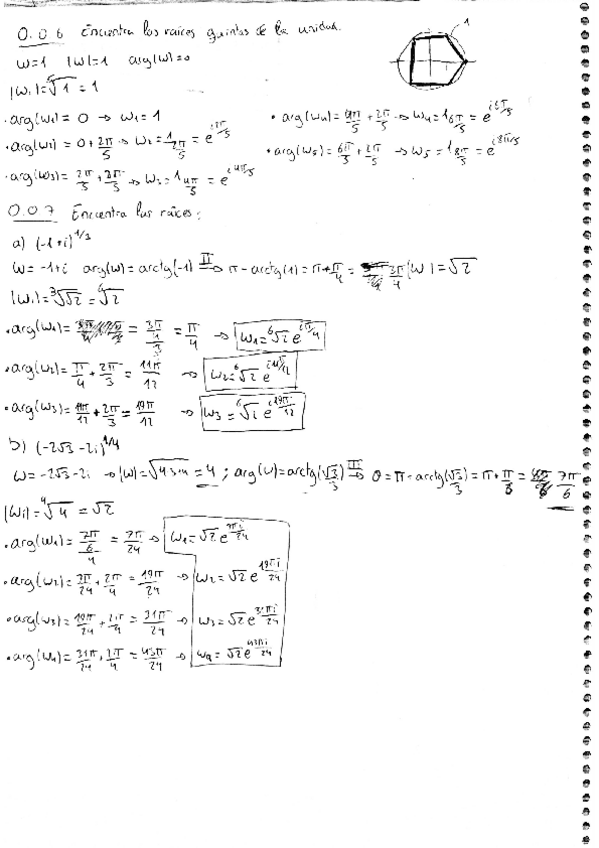 0.06 Encuentra las raíces quintas de la unidad.
1
w=1 |w|=1 arg(w)=0
|wi|=⁵√1 = 1
· arg(w1) = 0 → w1 = 1
· arg(w2) = 0 + 2π/5 → w2 = 1_{2π/5} = e^{i2π/5}
· arg(w3) = 2π/5 + 2π/5 → w3 = 1_{4π/5} = e^{i4π/5}
· arg(w4) = 4π/5 + 2π/5 → w4 = 1_{6π/5} = e^{i6π/5}
· arg(w5) = 6π/5 + 2π/5 → w5 = 1_{8π/5} = e^{i8π/5}
0.07 Encuentra las raíces:
a) (-1+i)^{1/3}
w = -1+i arg(w) = arctg(-1) II→ π - arctg(1) = π + π/4 = 3π/4 |w| = √2
|wi| = ³√√2 = ⁶√2
· arg(w1) = 3π/4/3 = π/4 → w1 = ⁶√2 e^{iπ/4}
· arg(w2) = π/4 + 2π/3 = 11π/12 → w2 = ⁶√2 e^{i11π/12}
· arg(w3) = 11π/12 + 2π/3 = 19π/12 → w3 = ⁶√2 e^{i19π/12}
b) (-2√3 - 2i)^{1/4}
w = -2√3 - 2i → |w| = √4·3+4 = 4 ; arg(w) = arctg(√3/3) III→ θ = π - arctg(√3/3) = π + π/6 = 7π/6
|wi| = ⁴√4 = √2
· arg(w1) = 7π/6/4 = 7π/24 → w1 = √2 e^{7πi/24}
· arg(w2) = 7π/24 + 2π/4 = 19π/24 → w2 = √2 e^{19πi/24}
· arg(w3) = 19π/24 + 2π/4 = 31π/24 → w3 = √2 e^{31πi/24}
· arg(w4) = 31π/24 + 2π/4 = 43π/24 → w4 = √2 e^{43πi/24}